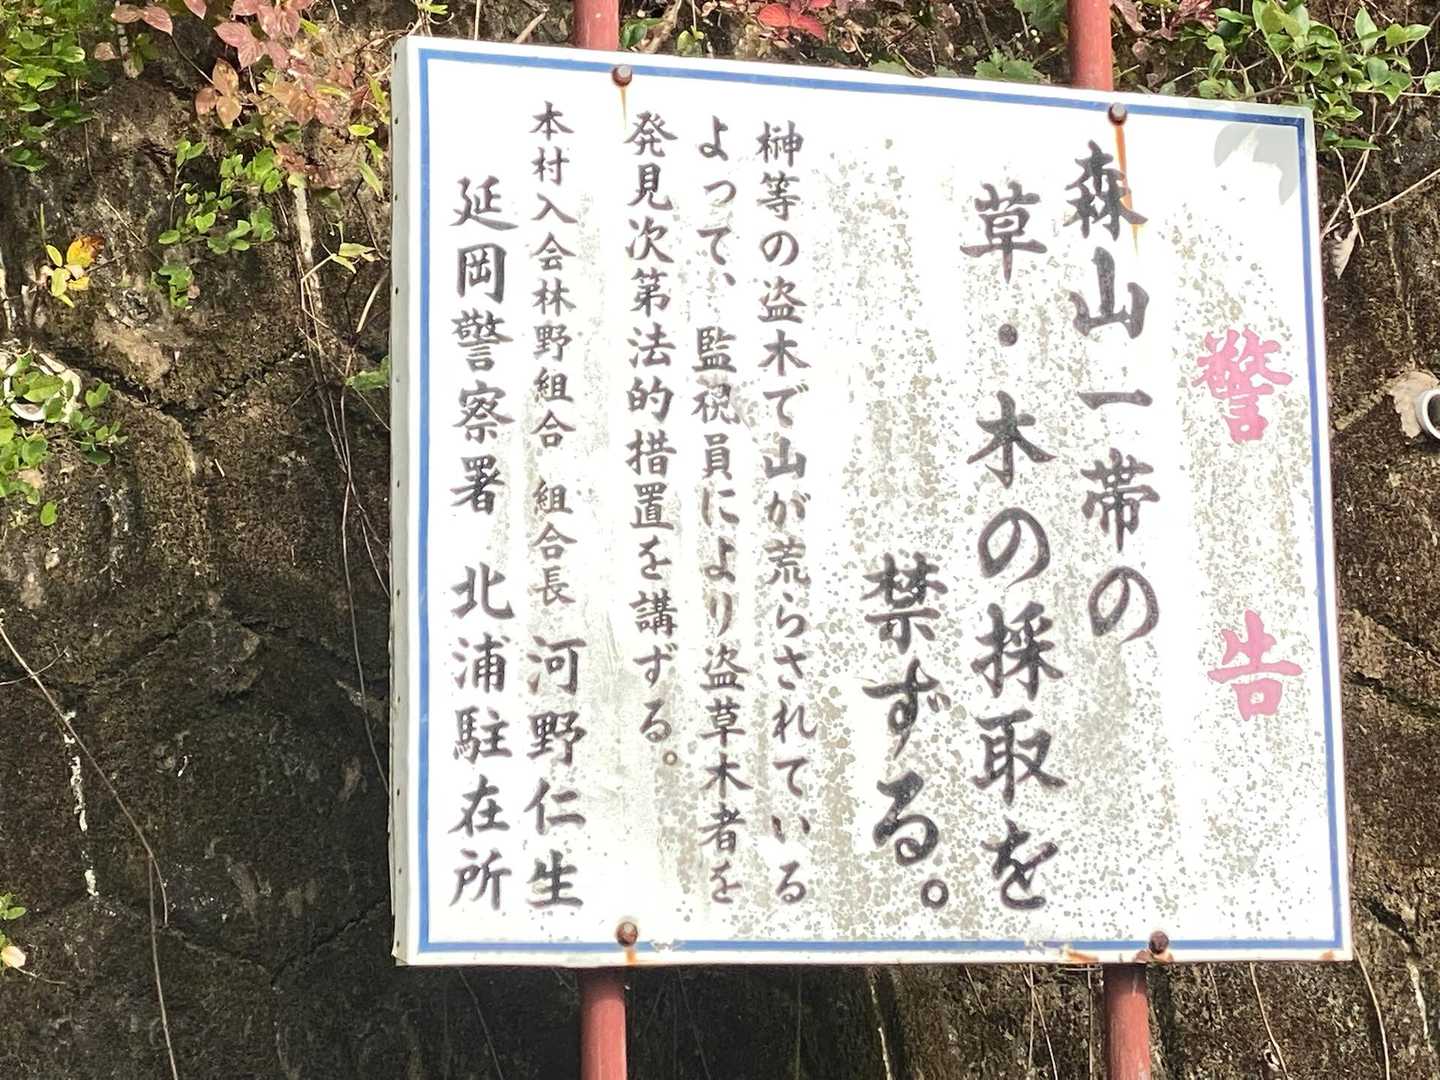 警告
森山一帯の
草・木の採取を
禁ずる。
榊等の盗木で山が荒らされている
よって、監視員により盗草木者を
発見次第法的措置を講ずる。
本村入会林野組合 組合長 河野仁生
延岡警察署 北浦駐在所